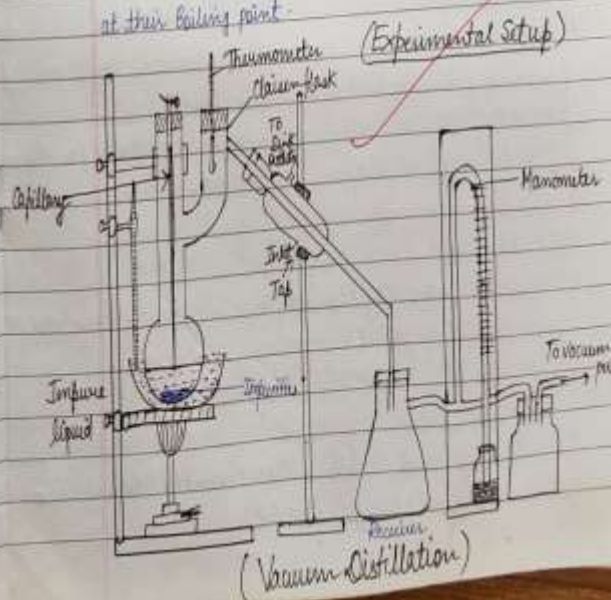 at their boiling point.
(Experimental Setup)
Thermometer
Claisen flask
To
Sink
Capillary
Manometer
Inlet
Tap
To vacuum
Impure
liquid
Impurities
Receiver
(Vacuum Distillation)